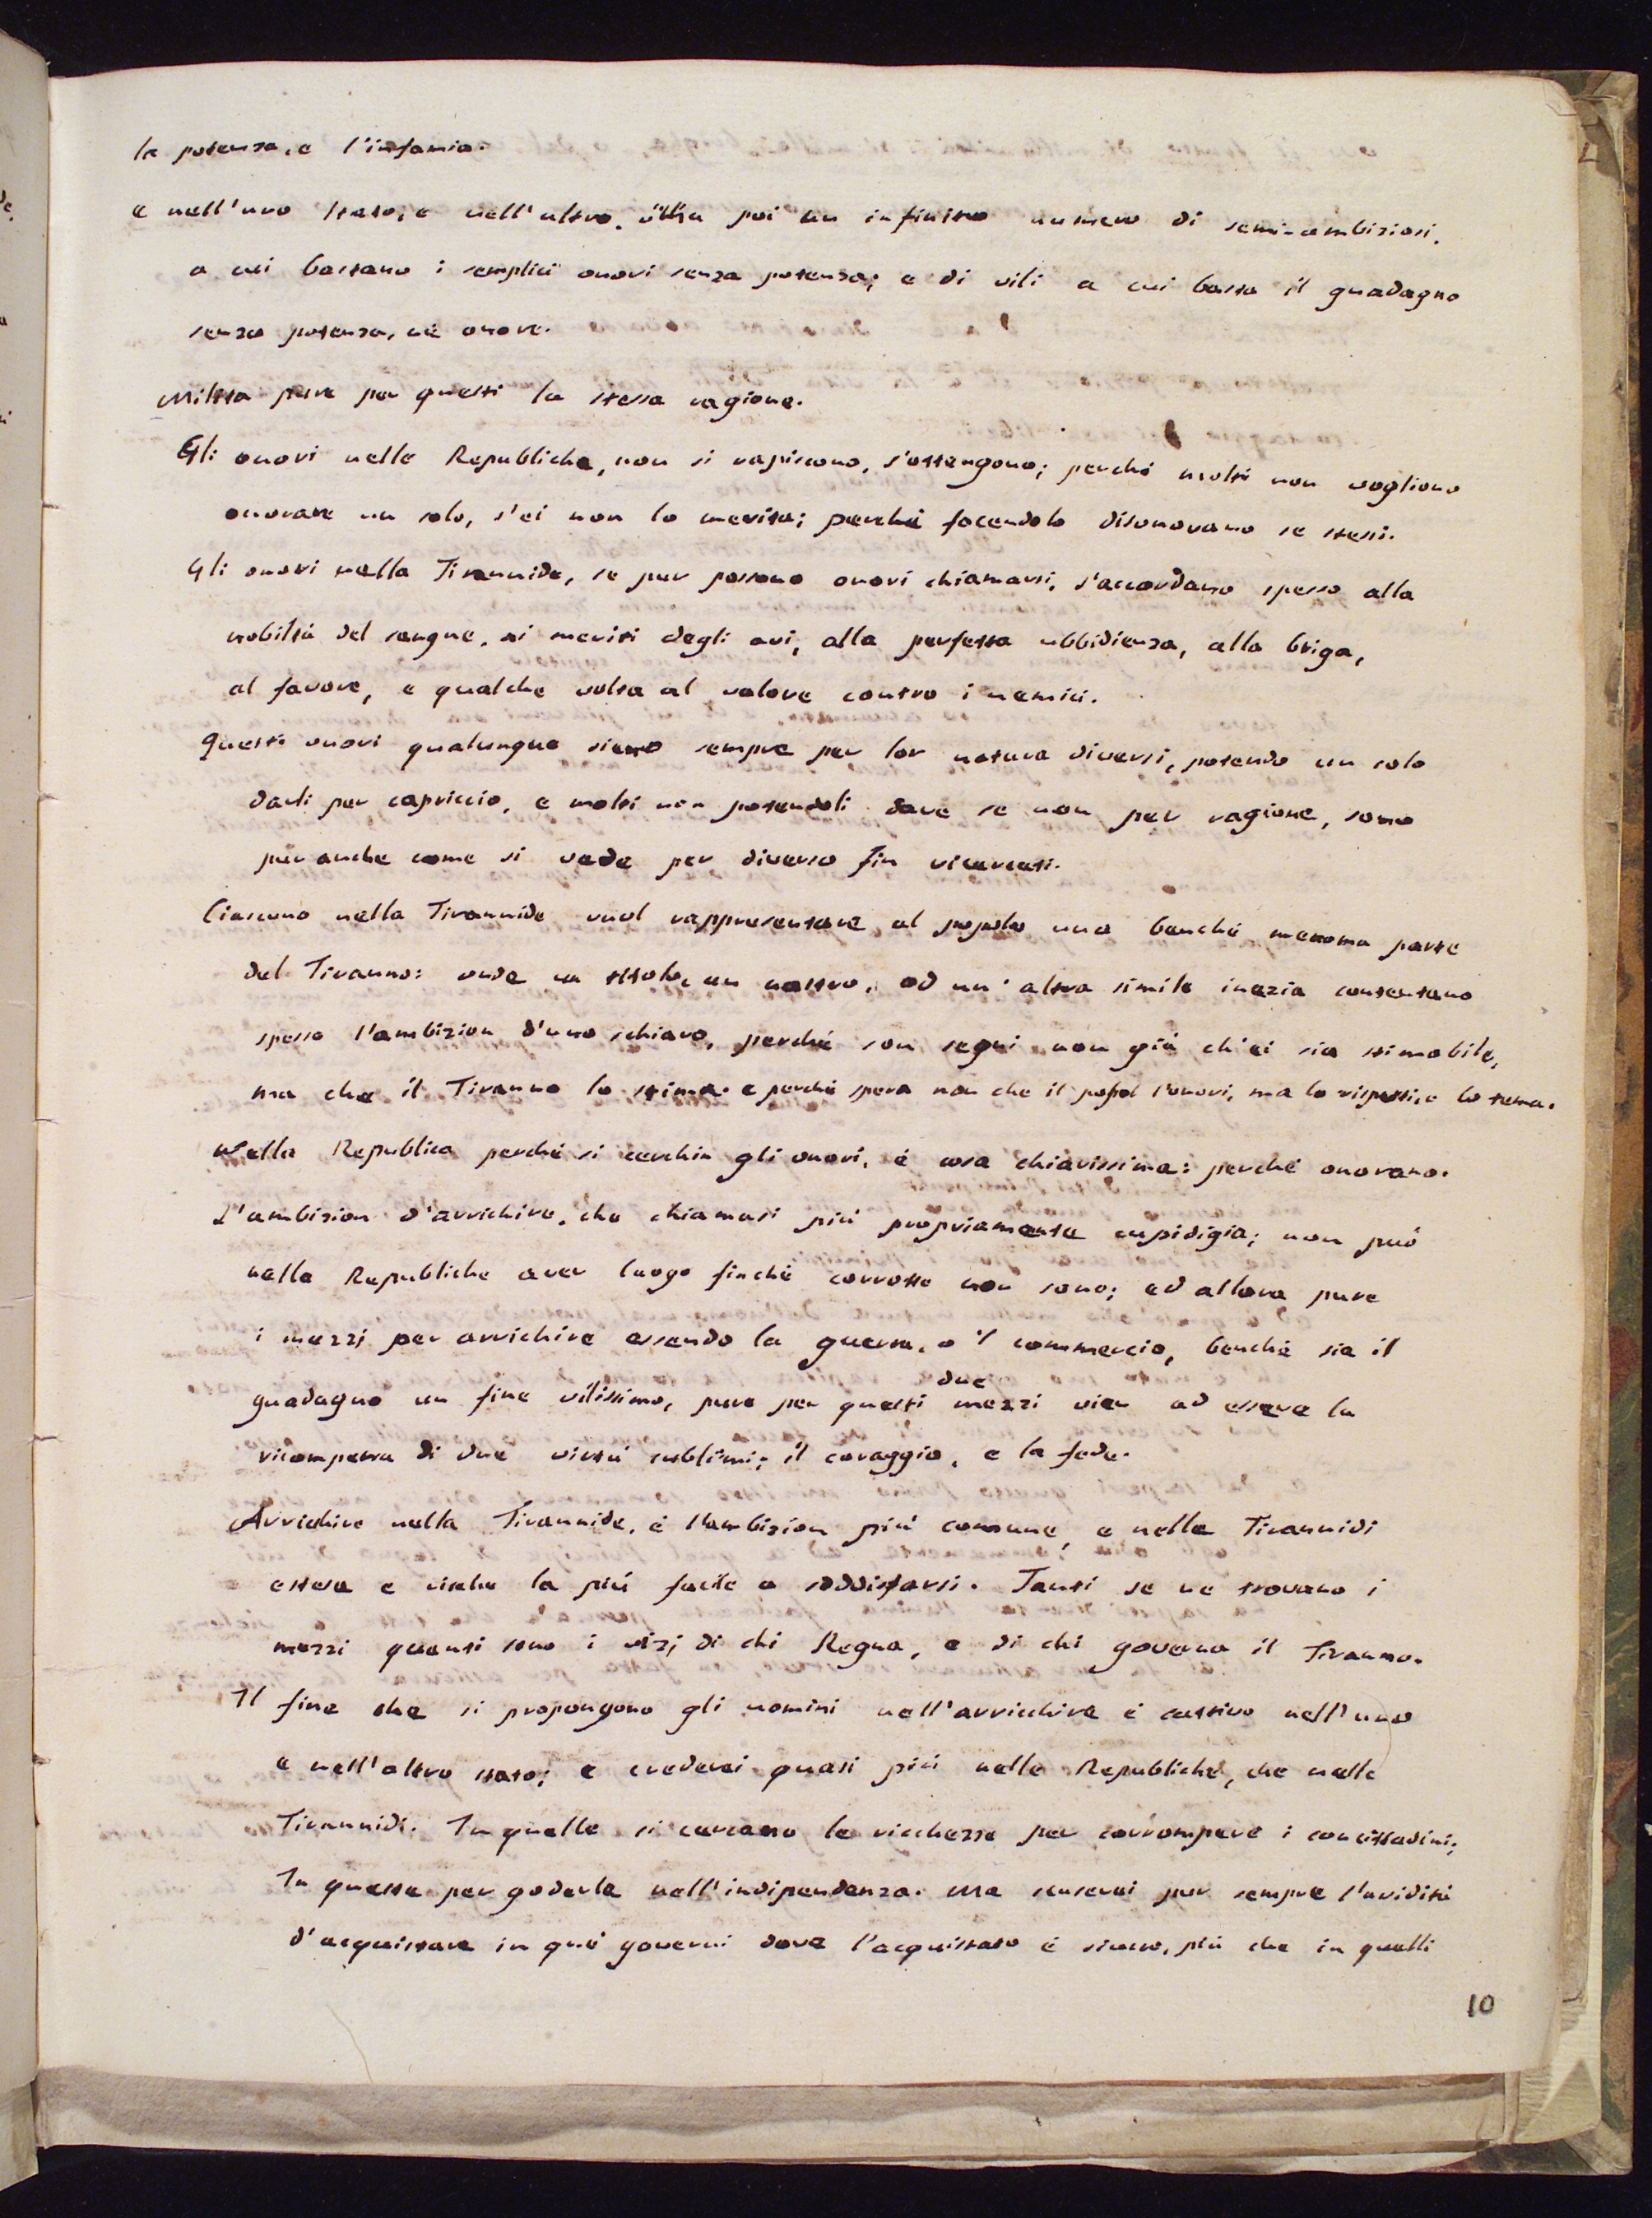 la potenza, e l'infamia.
e nell'uno stato, e nell'altro. v'ha poi un infinito numero di semi-ambiziosi,
a cui bastano i semplici onori senza potenza; e di vili a cui basta il guadagno
senza potenza, nè onore.
Milita pure per questi la stessa ragione.
Gli onori nelle Republiche, non si rapiscono, s'ottengono; perchè molti non vogliono
onorare un solo, s'ei non lo merita; perchè facendolo disonorano se stessi.
Gli onori nella Tirannide, se pur possono onori chiamarsi, s'accordano spesso alla
nobiltà del sangue, ai meriti degli avi, alla perfetta ubbidienza, alla briga,
al favore, e qualche volta al valore contro i nemici.
Questi onori qualunque sieno sempre per lor natura diversi, potendo un solo
darli per capriccio, e molti non potendoli dare se non per ragione, sono
pur anche come si vede per diverso fin ricercati.
Ciascuno nella Tirannide vuol rappresentare al popolo una benchè menoma parte
del Tiranno: onde un titolo, un nastro, od un' altra simile inezia contentano
spesso l'ambizion d'uno schiavo, perchè son segni non già ch'ei sia stimabile,
ma che il Tiranno lo stima: e perchè spera non che il popol l'onori, ma lo rispetti, e lo tema.
Nella Republica perchè si cerchin gli onori, è cosa chiarissima: perchè onorano.
L'ambizion d'arrichire, che chiamasi più propriamente cupidigia; non può
nelle Republiche aver luogo finchè corrotte non sono; ed allora pure
i mezzi per arrichire essendo la guerra, o 'l commercio, benchè sia il
guadagno un fine vilissimo, pure per questi due mezzi vien ad essere la
ricompensa di due virtù sublimi; il coraggio, e la fede.
Arrichire nella Tirannide, è l'ambizion più comune, e nelle Tirannidi
estese e ricche la più facile a soddisfarsi. Tanti se ne trovano i
mezzi quanti sono i vizj di chi Regna, e di chi governa il Tiranno.
Il fine che si propongono gli uomini nell'arricchire è cattivo nell'uno
e nell'altro stato; e crederei quasi più nelle Republiche, che nelle
Tirannidi. In quelle si cercano le ricchezze per corrompere i concittadini;
In queste per goderle nell'indipendenza. Ma scuserei pur sempre l'avidità
d'acquistare in que' governi dove l'acquistato è sicuro, più che in quelli
10